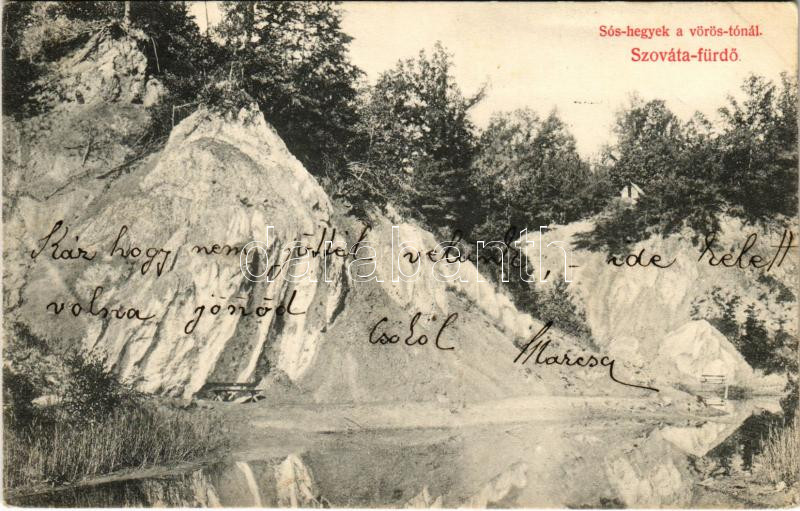 Sós-hegyek a vörös-tónál.
Szováta-fürdő.
Kár hogy nem jöttél velünk, – ide kelett
volna jönöd.
Csókol Marcsa
darabanth